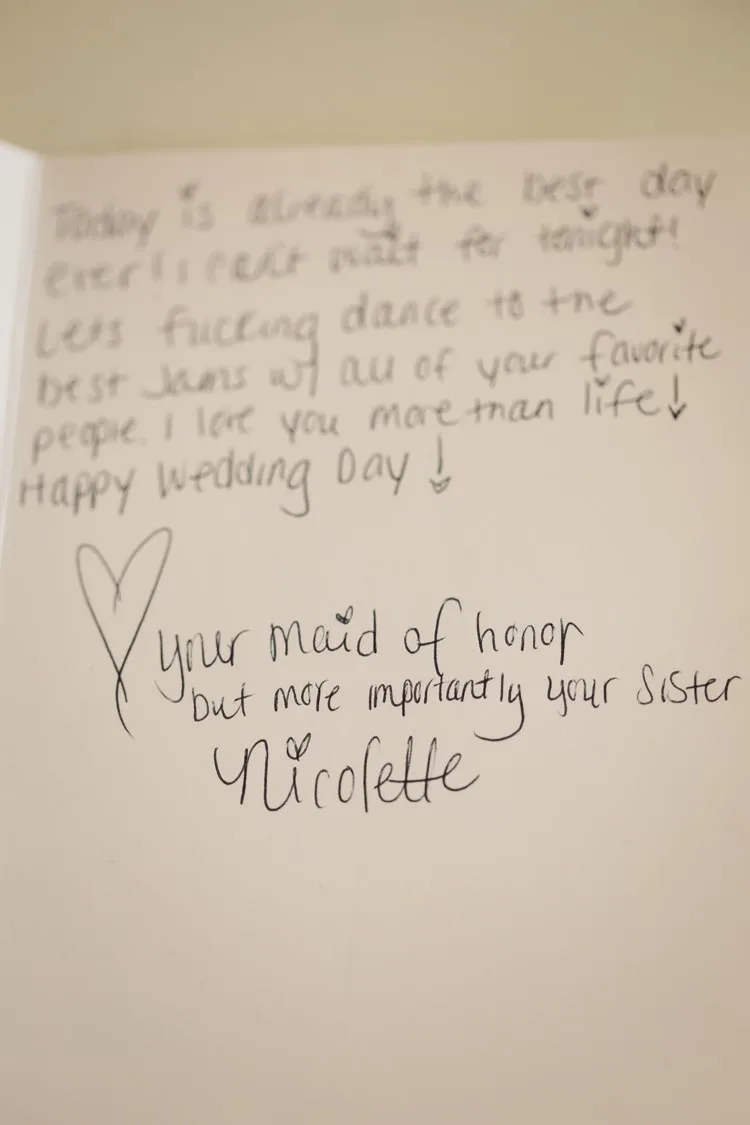 Today is already the best day
ever! I can't wait for tonight!
Lets fucking dance to the
best Jams w/ all of your favorite
people. I love you more than life!
Happy Wedding Day!
your maid of honor
but more importantly your Sister
Nicolette